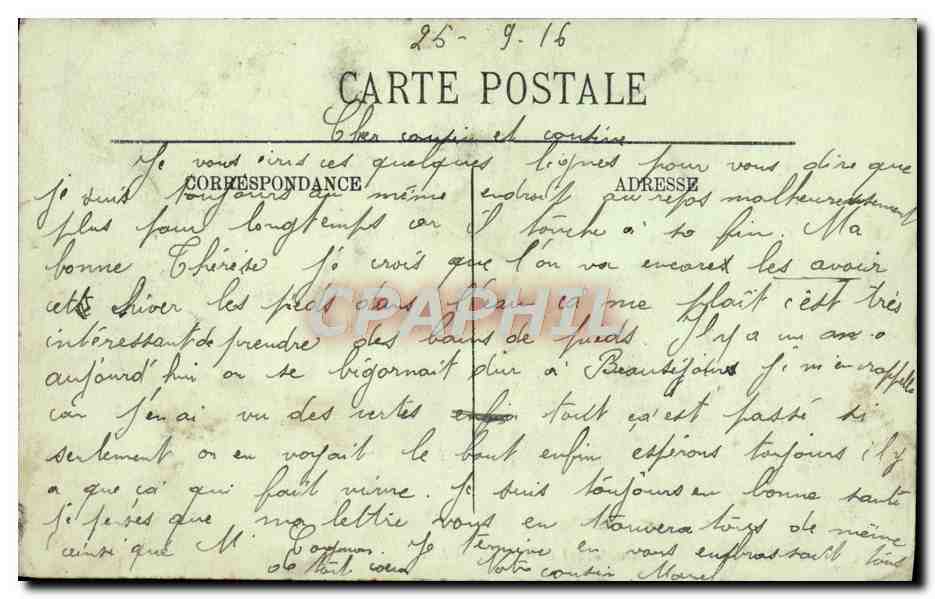 25-9-16
CARTE POSTALE
Cher cousin et cousine
Je vous ecris ces quelques lignes pour vous dire que
CORRESPONDANCE ADRESSE
je suis toujours au même endroit au repos malheureusement
plus pour longtemps car il touche à sa fin. Ma
bonne Thérèse je crois que l'on va encore les avoir
cet hiver les pieds dans l'eau ça me plaît c'est très
CPAPHIL
intéressant de prendre des bains de pieds. Il y a un an
aujourd'hui on se bigornait dur à Beauséjour je m'en rappelle
car j'en ai vu des vertes enfin tout ça c'est passé si
seulement on en voyait le bout enfin espérons toujours il y
a que ça qui fait vivre. Je suis toujours en bonne santé
je penses que ma lettre vous en trouvera tous de même
ainsi que Mr Je termine en vous embrassant tous
de tout coeur Votre cousin Marcel